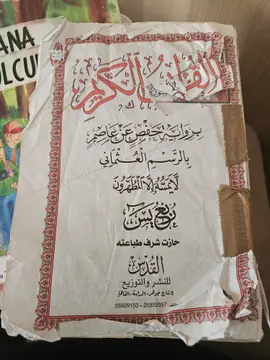 ANA
OLCUL
القرآن الكريم
برواية حفص عن عاصم
بالرسم العثماني
لا يمسه إلا المطهرون
ربع يس
حازت شرف طباعته
القدس
للنشر والتوزيع
25929153 - 25922057